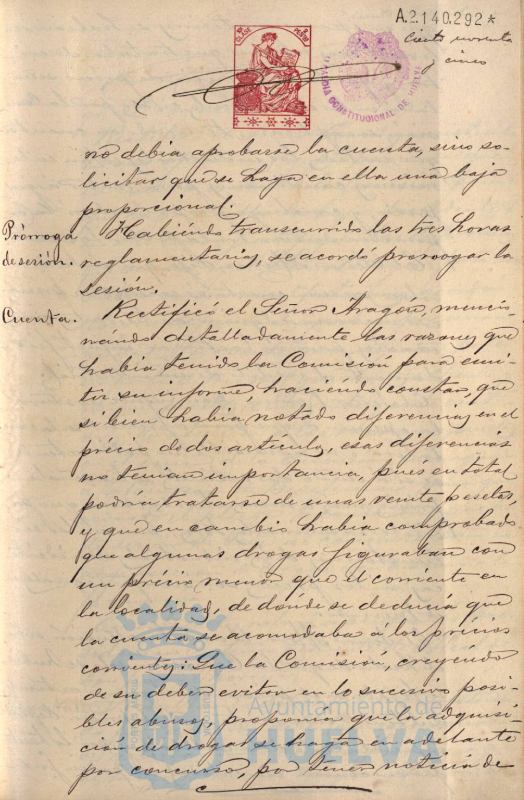 A.2.140.292*
Ciento noventa
y cinco
ALCALDIA CONSTITUCIONAL DE HUELVA
no debia aprobarse la cuenta, sino so-
licitar que se haga en ella una baja
proporcional.
Prórroga
de sesión.
Habiéndo transcurrido las tres horas
reglamentarias, se acordó prorrogar la
sesión.
Cuenta.
Rectificó el Señor Aragón, mencio-
nando detalladamente las razones que
habia tenido la Comisión para emi-
tir su informe, haciéndo constar, que
si bien habia notado diferencias en el
précio de dos artículos, esas diferencias
no tenian importancia, pués en total
podría tratarse de unas veinte pesetas,
y que en cambio habia comprobado
que algunas drogas figuraban con
un précio menor que el corriente en
la localidad, de dónde se deducia que
la cuenta se acomodaba á los précios
corrientes: Que la Comisión, creyéndo
de su deber evitar en lo sucesivo posi-
bles abusos, proponia que la adquisi-
ción de drogas se haga en adelante
por concurso, por tener noticia de
Ayuntamiento de
HUELVA